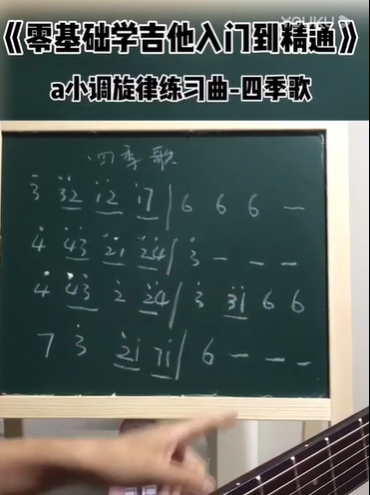 YOUKU
《零基础学吉他入门到精通》
a小调旋律练习曲-四季歌
四季歌
3̇ 3̇2̇ 1̇2̇ 1̇7 | 6 6 6 —
4̇ 4̇3̇ 2̇1̇ 2̇4̇ | 3̇ — — —
4̇ 4̇3̇ 2̇ 2̇4̇ | 3̇ 3̇1̇ 6 6
7 3̇ 2̇1̇ 71̇ | 6 — — —